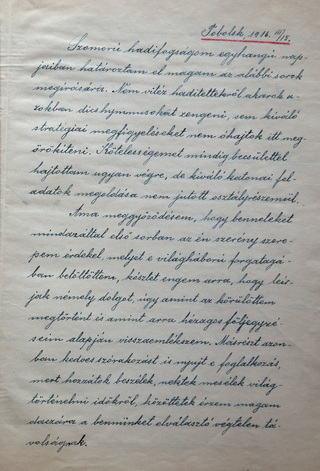 Tobolsk, 1916. III/15.
Szomorú hadifogságom egyhangú nap-
jaiban határoztam el magam az alábbi sorok
megírására. Nem vitéz haditettekről akarok a-
zokban dicshymnusokat zengeni, sem kiváló
stratégiai megfigyeléseket nem óhajtok itt meg-
örökíteni. Kötelességemet mindig becsülettel
hajtottam ugyan végre, de kiváló katonai fel-
adatok megoldása nem jutott osztályrészemül.
Ama meggyőződésem, hogy benneteket
mindazáltal első sorban az én szerény szere-
pem érdekel, melyet e világháború forgatagá-
ban betöltöttem, késztet engem arra, hogy leír-
jak némely dolgot, úgy amint az körülöttem
megtörtént és amint arra hézagos följegyzé-
seim alapján visszaemlékszem. Másrészt azon-
ban kedves szórakozást is nyújt e foglalkozás,
mert hozzátok beszélek, nektek mesélek világ-
történelmi időkről, közöttetek érzem magam
daczára a bennünket elválasztó végtelen tá-
volságnak.